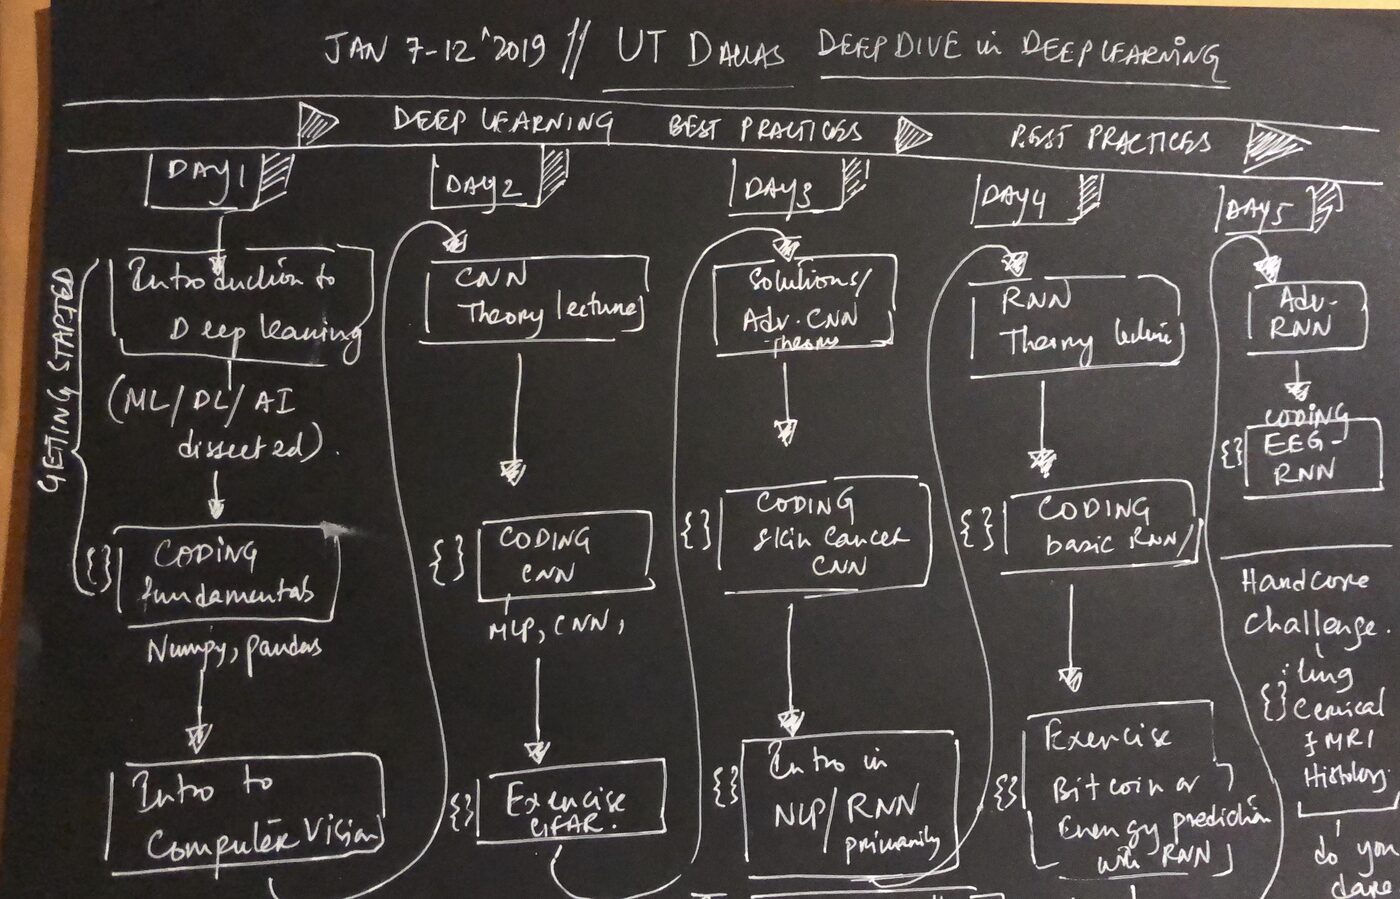 JAN 7-12 '2019 // UT DALLAS DEEPDIVE in DEEPLEARNING
DEEP LEARNING BEST PRACTICES BEST PRACTICES
DAY1
GETTING STARTED
Introduction to
Deep learning
(ML/DL/AI
dissected).
{} CODING
fundamentals
Numpy, pandas
Intro to
Computer Vision
DAY2
CNN
Theory lecture
{} CODING
CNN
MLP, CNN,
{} Exercise
CIFAR.
DAY3
Solutions/
Adv. CNN
theory
{} CODING
skin cancer
CNN
{} Intro in
NLP/RNN
primarily
DAY4
RNN
Theory lecture
{} CODING
basic RNN/
{} Exercise
Bitcoin or
Energy prediction
with RNN
DAY5
Adv.
RNN
CODING
{} EEG-
RNN
Hardcore
challenge.
lung
{} Cervical
fMRI
Histology.
do you
dare